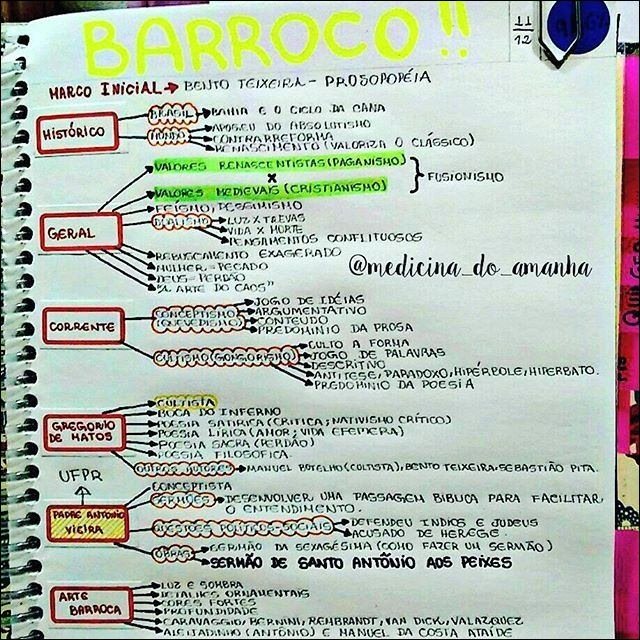 BARROCO!!
11/12
MARCO INICIAL → BENTO TEIXEIRA - PROSOPOPÉIA
HISTÓRICO
BRASIL → BAHIA E O CICLO DA CANA
MUNDO → APOGEU DO ABSOLUTISMO
CONTRARREFORMA
RENASCIMENTO (VALORIZA O CLÁSSICO)
GERAL
VALORES RENASCENTISTAS (PAGANISMO)
X
VALORES MEDIEVAIS (CRISTIANISMO)
FUSIONISMO
FEÍSMO, PESSIMISMO
DUALISMO → LUZ X TREVAS
VIDA X MORTE
PENSAMENTOS CONFLITUOSOS
REBUSCAMENTO EXAGERADO
MULHER = PECADO
DEUS = PERDÃO
"A ARTE DO CAOS"
@medicina_do_amanha
CORRENTE
CONCEPTISMO (QUEVEDISMO)
JOGO DE IDÉIAS
ARGUMENTATIVO
CONTEÚDO
PREDOMÍNIO DA PROSA
CULTISMO (GONGORISMO)
CULTO A FORMA
JOGO DE PALAVRAS
DESCRITIVO
ANTÍTESE, PARADOXO, HIPÉRBOLE, HIPÉRBATO.
PREDOMÍNIO DA POESIA
GREGÓRIO DE MATOS
CULTISTA
BOCA DO INFERNO
POESIA SATÍRICA (CRÍTICA; NATIVISMO CRÍTICO)
POESIA LÍRICA (AMOR; VIDA EFÊMERA)
POESIA SACRA (PERDÃO)
POESIA FILOSÓFICA.
OUTROS AUTORES → MANUEL BOTELHO (CULTISTA), BENTO TEIXEIRA, SEBASTIÃO PITA.
UFPR
PADRE ANTONIO VIEIRA
CONCEPTISTA
SERMÕES → DESENVOLVER UMA PASSAGEM BÍBLICA PARA FACILITAR
O ENTENDIMENTO.
QUESTÕES POLÍTICAS-SOCIAIS → DEFENDEU ÍNDIOS E JUDEUS
ACUSADO DE HEREGE.
OBRAS → SERMÃO DA SEXAGÉSIMA (COMO FAZER UM SERMÃO)
SERMÃO DE SANTO ANTÔNIO AOS PEIXES
ARTE BARROCA
LUZ E SOMBRA
DETALHES ORNAMENTAIS
CORES FORTES
PROFUNDIDADE
CARAVAGGIO, BERNINI, REMBRANDT, VAN DICK, VALAZQUEZ
ALEIJADINHO (ANTÔNIO) E MANUEL DA COSTA ATAÍDE